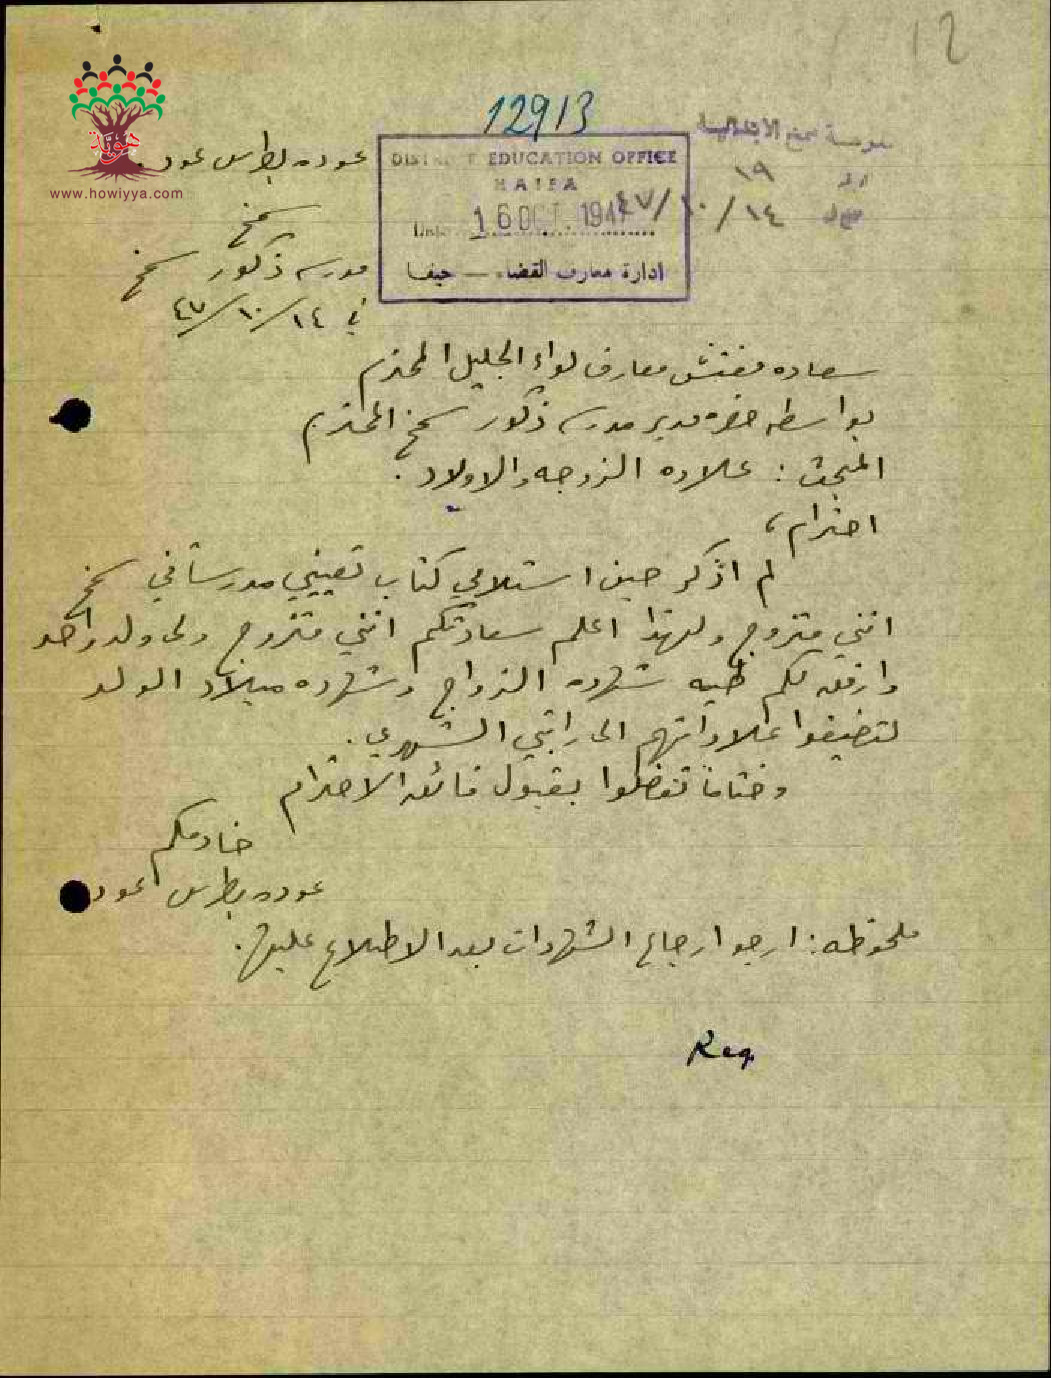 12
12913
هوية
www.howiyya.com
DISTRICT EDUCATION OFFICE
HAIFA
Date 16 OCT 1947
ادارة معارف القضاء — حيفا
مدرسة سمخ الابتدائية
١٩
٤٧/١٠/١٤
عوده بطرس عوده
سمخ
مدرسه ذكور سمخ
في ٤٧/١٠/١٤
سعاده مفتش معارف لواء الجليل المحترم
بواسطه حضره مدير مدرسه ذكور سمخ المحترم
المبحث : علاوه الزوجه والاولاد .
احترام،
لم اذكر حين استلامي كتاب تعييني مدرساً في سمخ
انني متزوج ولهذا اعلم سعادتكم انني متزوج ولي ولد واحد
وارفق لكم طيه شهاده الزواج وشهاده ميلاد الولد
لتضيفوا علاواتهم الى راتبي الشهري .
وختاماً تفضلوا بقبول فائق الاحترام
خادمكم
عوده بطرس عوده
ملحوظه : ارجو ارجاع الشهادات بعد الاطلاع عليها .
Reg.